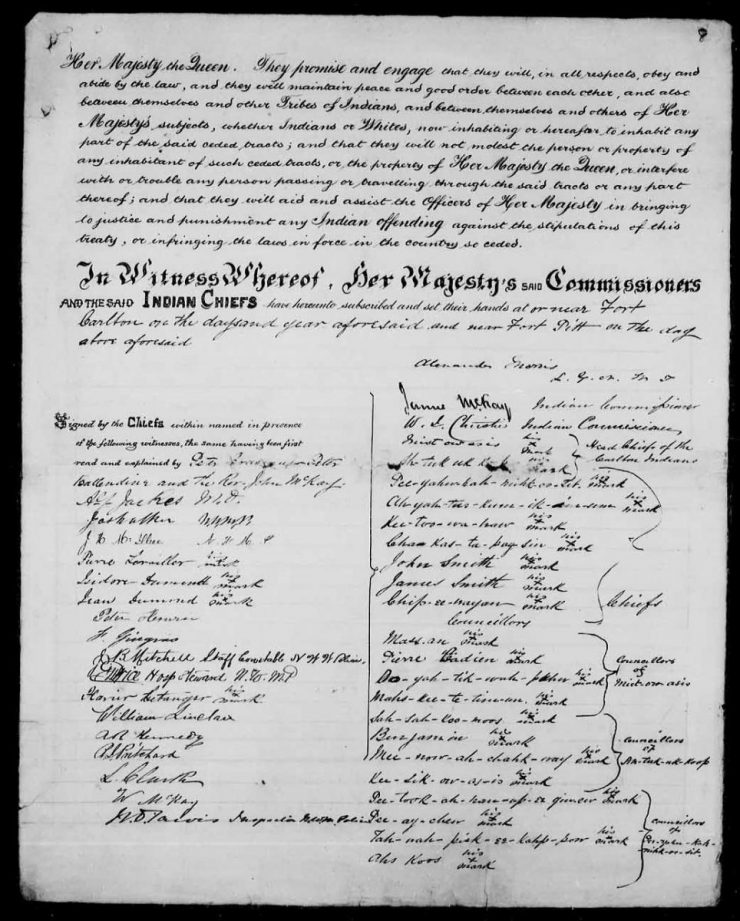 8
Her Majesty the Queen. They promise and engage that they will, in all respects, obey and
abide by the law, and they will maintain peace and good order between each other, and also
between themselves and other Tribes of Indians, and between themselves and others of Her
Majesty's subjects, whether Indians or Whites, now inhabiting or hereafter to inhabit any
part of the said ceded tracts; and that they will not molest the person or property of
any inhabitant of such ceded tracts, or the property of Her Majesty the Queen, or interfere
with or trouble any person passing or travelling through the said tracts or any part
thereof; and that they will aid and assist the Officers of Her Majesty in bringing
to justice and punishment any Indian offending against the stipulations of this
treaty, or infringing the laws in force in the country so ceded.
In Witness Whereof, Her Majesty's said Commissioners
and the said Indian Chiefs have hereunto subscribed and set their hands at or near Fort
Carlton on the day and year aforesaid and near Fort Pitt on the day
above aforesaid
Alexander Morris
L. G. N. W. T
James McKay Indian Commissioner
W. J. Christie Indian Commissioner
Mist-ow-asis his x mark
his x mark
Head Chiefs of the
Carlton Indians
Pee-yahn-kah-nihk-oo-sit his x mark
Ah-yah-tus-kum-ik-im-um his x mark
Kee-too-wa-haw his x mark
Cha-kas-ta-pay-sin his x mark
John Smith his x mark
James Smith his x mark
Chip-ee-wayan his x mark
Chiefs
Councillors
Massan his x mark
Pierre Cadien his x mark
Oo-yah-tik-wah-pahn his x mark
Mahs-kee-te-tim-un his x mark
Councillors
of
Mist-ow-asis
Sah-sah-koo-moos his x mark
Benjamin his x mark
Mee-now-ah-chahk-way his x mark
Kee-sik-ow-as-is his x mark
Councillors
of
Ah-tuk-uk-koop
Pee-took-ah-han-up-ee-gineew his x mark
Pee-ay-chew his x mark
Tah-wah-pisk-ee-kahp-pow his x mark
Ahs Koos his x mark
Councillors
of
Pee-yahn-kah-
nihk-oo-sit.
Signed by the Chiefs within named in presence
of the following witnesses, the same having been first
read and explained by Peter Erasmus, Peter
Ballendine and the Rev. John McKay.
A. G. Jackes M.D.
Jos Walker N.W.M.P.
J. H. McIllree N. W. M. P
Pierre Levailler his x mark
Isidore Dumond his x mark
Jean Dumond his x mark
Peter Hourie
F. Gingras
J. B. Mitchell Staff Constable N W M Police.
Hosp Steward N. W. M. P
Xavier Letanger his x mark
William Sinclair
A. R. Kennedy
R. J. Pritchard
L. Clarke
W. McKay
W. D. Jarvis Inspector N.W.M. Police